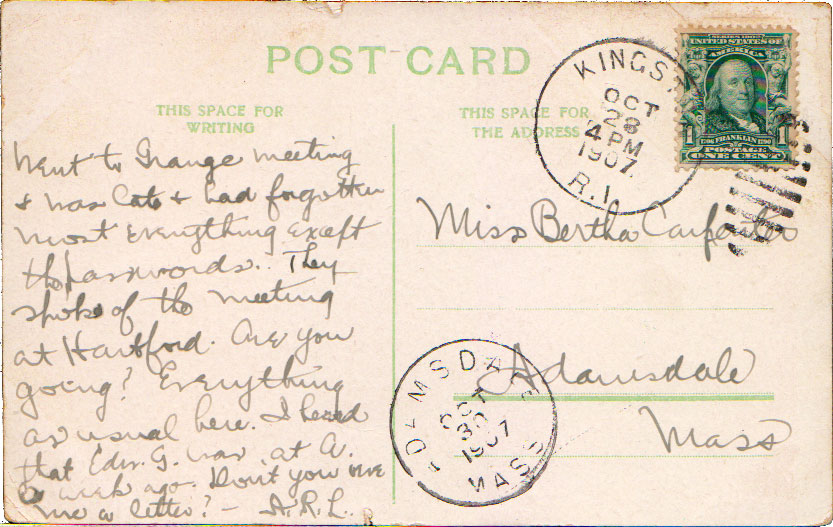 POST CARD
THIS SPACE FOR
WRITING
THIS SPACE FOR
THE ADDRESS
Went to Grange meeting
& was late & had forgotten
most everything except
the passwords. They
spoke of the meeting
at Hartford. Are you
going? Everything
as usual here. I heard
that Edw. G. was at A.
a week ago. Don't you owe
me a letter? - A.R.L.
KINGST
OCT
28
4 PM
1907
R.I.
SERIES 1902
UNITED STATES OF
AMERICA
1 1
1706 FRANKLIN 1790
POSTAGE
ONE CENT
Miss Bertha Carpenter
Adamsdale
Mass
ADAMSDALE
OCT
30
1907
MASS